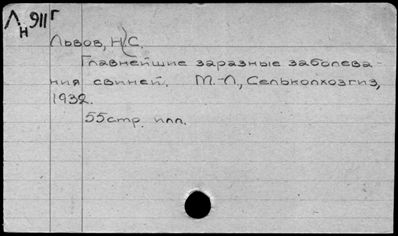 Л 911 г
н
Львов, Н.С.
Главнейшие заразные заболева-
ния свиней. М.-Л., Сельколхозгиз,
1932.
55 стр. илл.